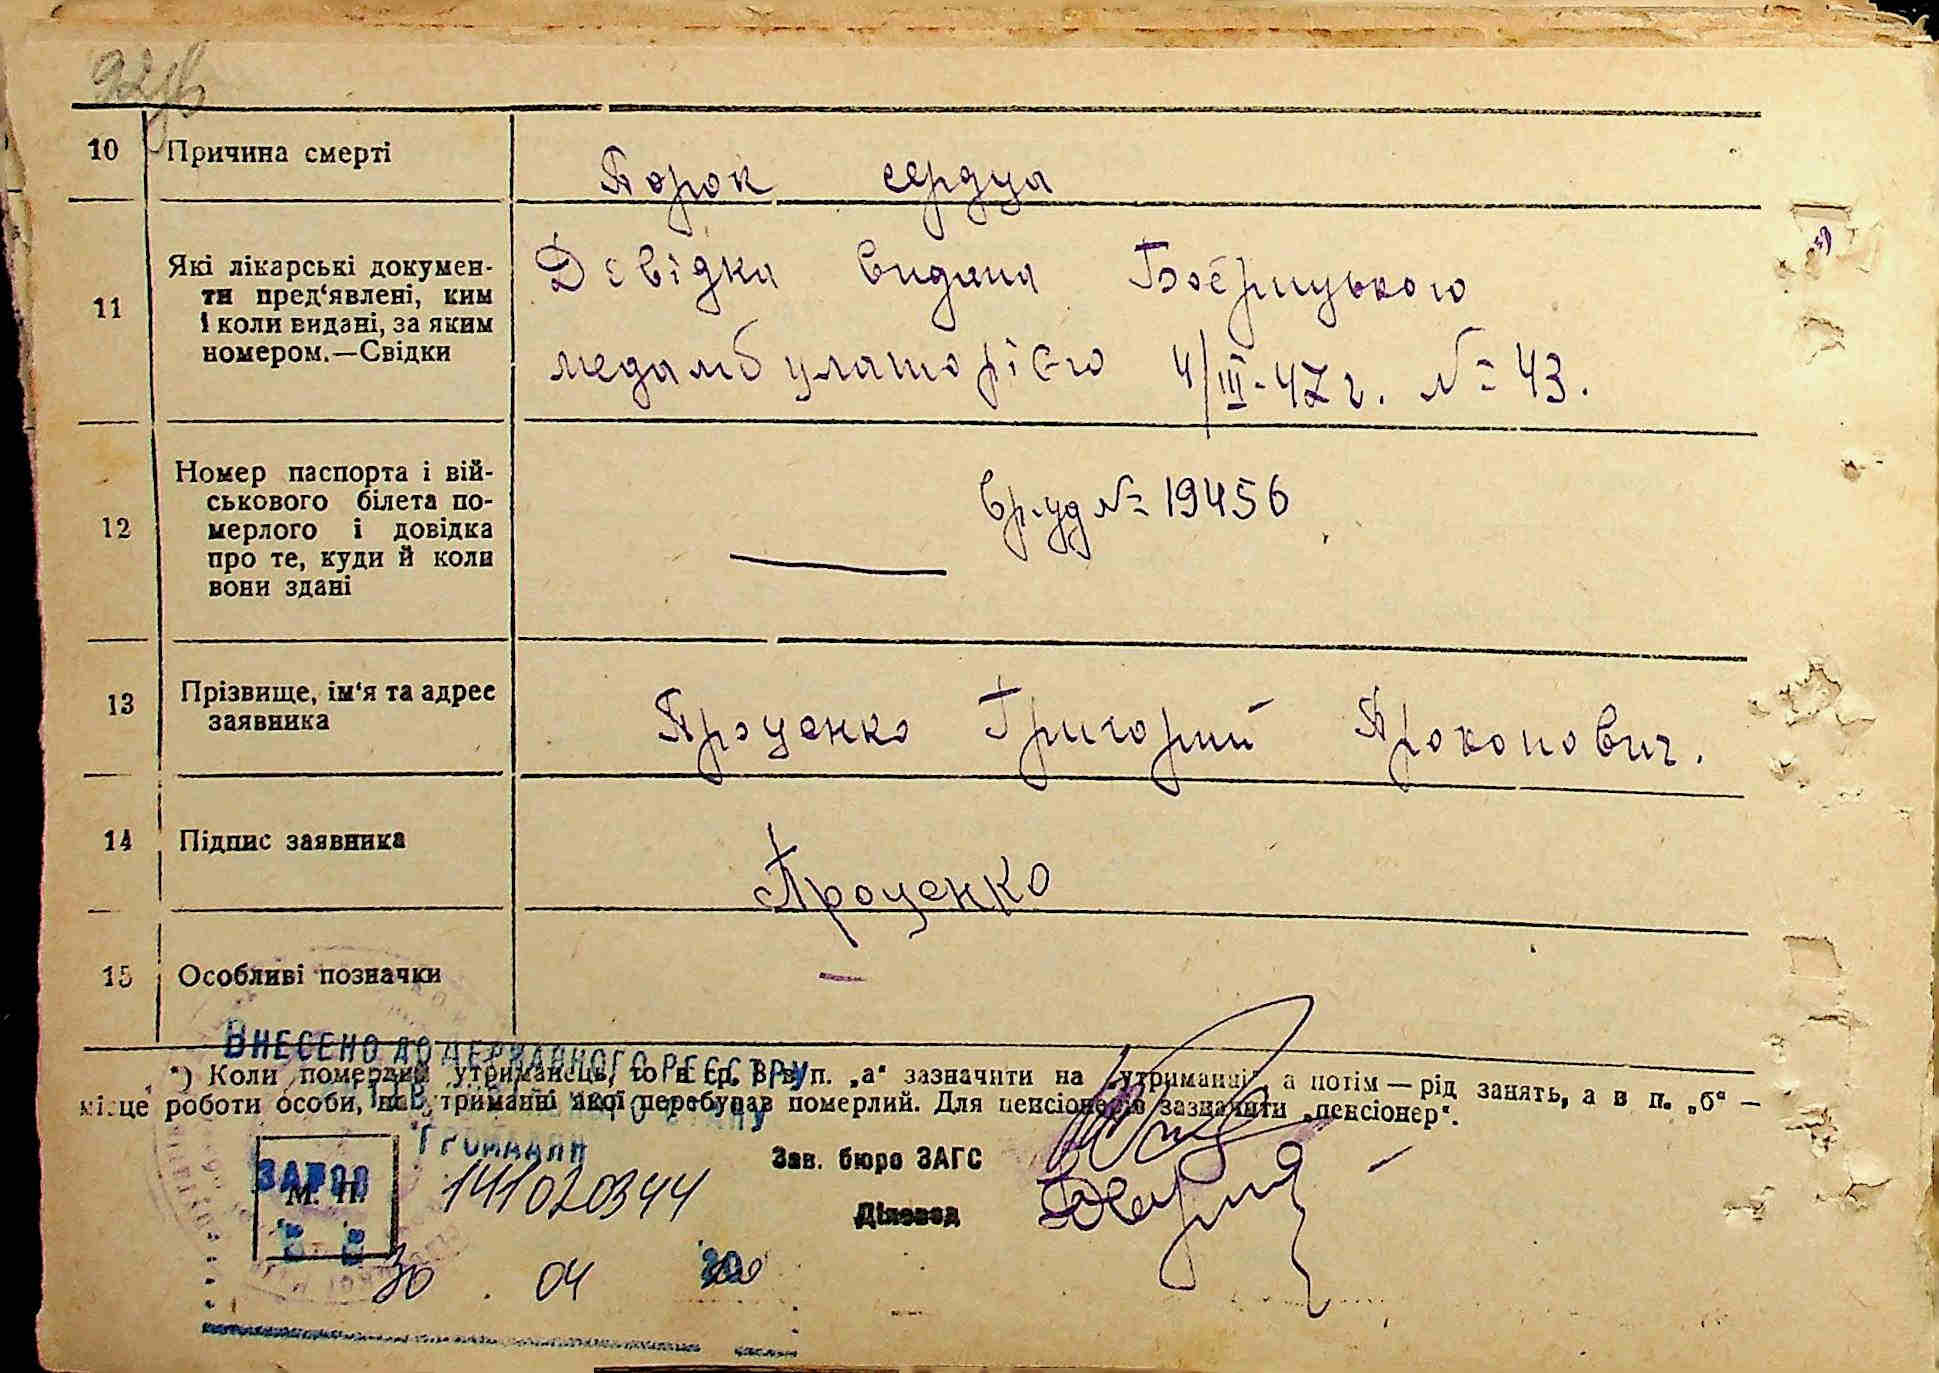 10 Причина смерті Порок сердца
11 Які лікарські докумен-
ти пред'явлені, ким
і коли видані, за яким
номером.—Свідки
Довідка видана
медамбулаторією 4/III-47 г. № 43.
12 Номер паспорта і вій-
ськового білета по-
мерлого і довідка
про те, куди й коли
вони здані
вр.уд № 19456
13 Прізвище, ім'я та адрес
заявника
Проценко Григорий Прокопович.
14 Підпис заявника Проценко
15 Особливі позначки —
ВНЕСЕНО ДО ДЕРЖАВНОГО РЕЄСТРУ
*) Коли померлий утриманець, то в гр. 8 в п. „а“ зазначити на „утриманні“, а потім — рід занять, а в п. „б“ —
місце роботи особи, на утриманні якої перебував померлий. Для пенсіонерів зазначити „пенсіонер“.
ГРОМАДЯН
Зав. бюро ЗАГС
М. П.
141020344
Діловод
30 . 04 20